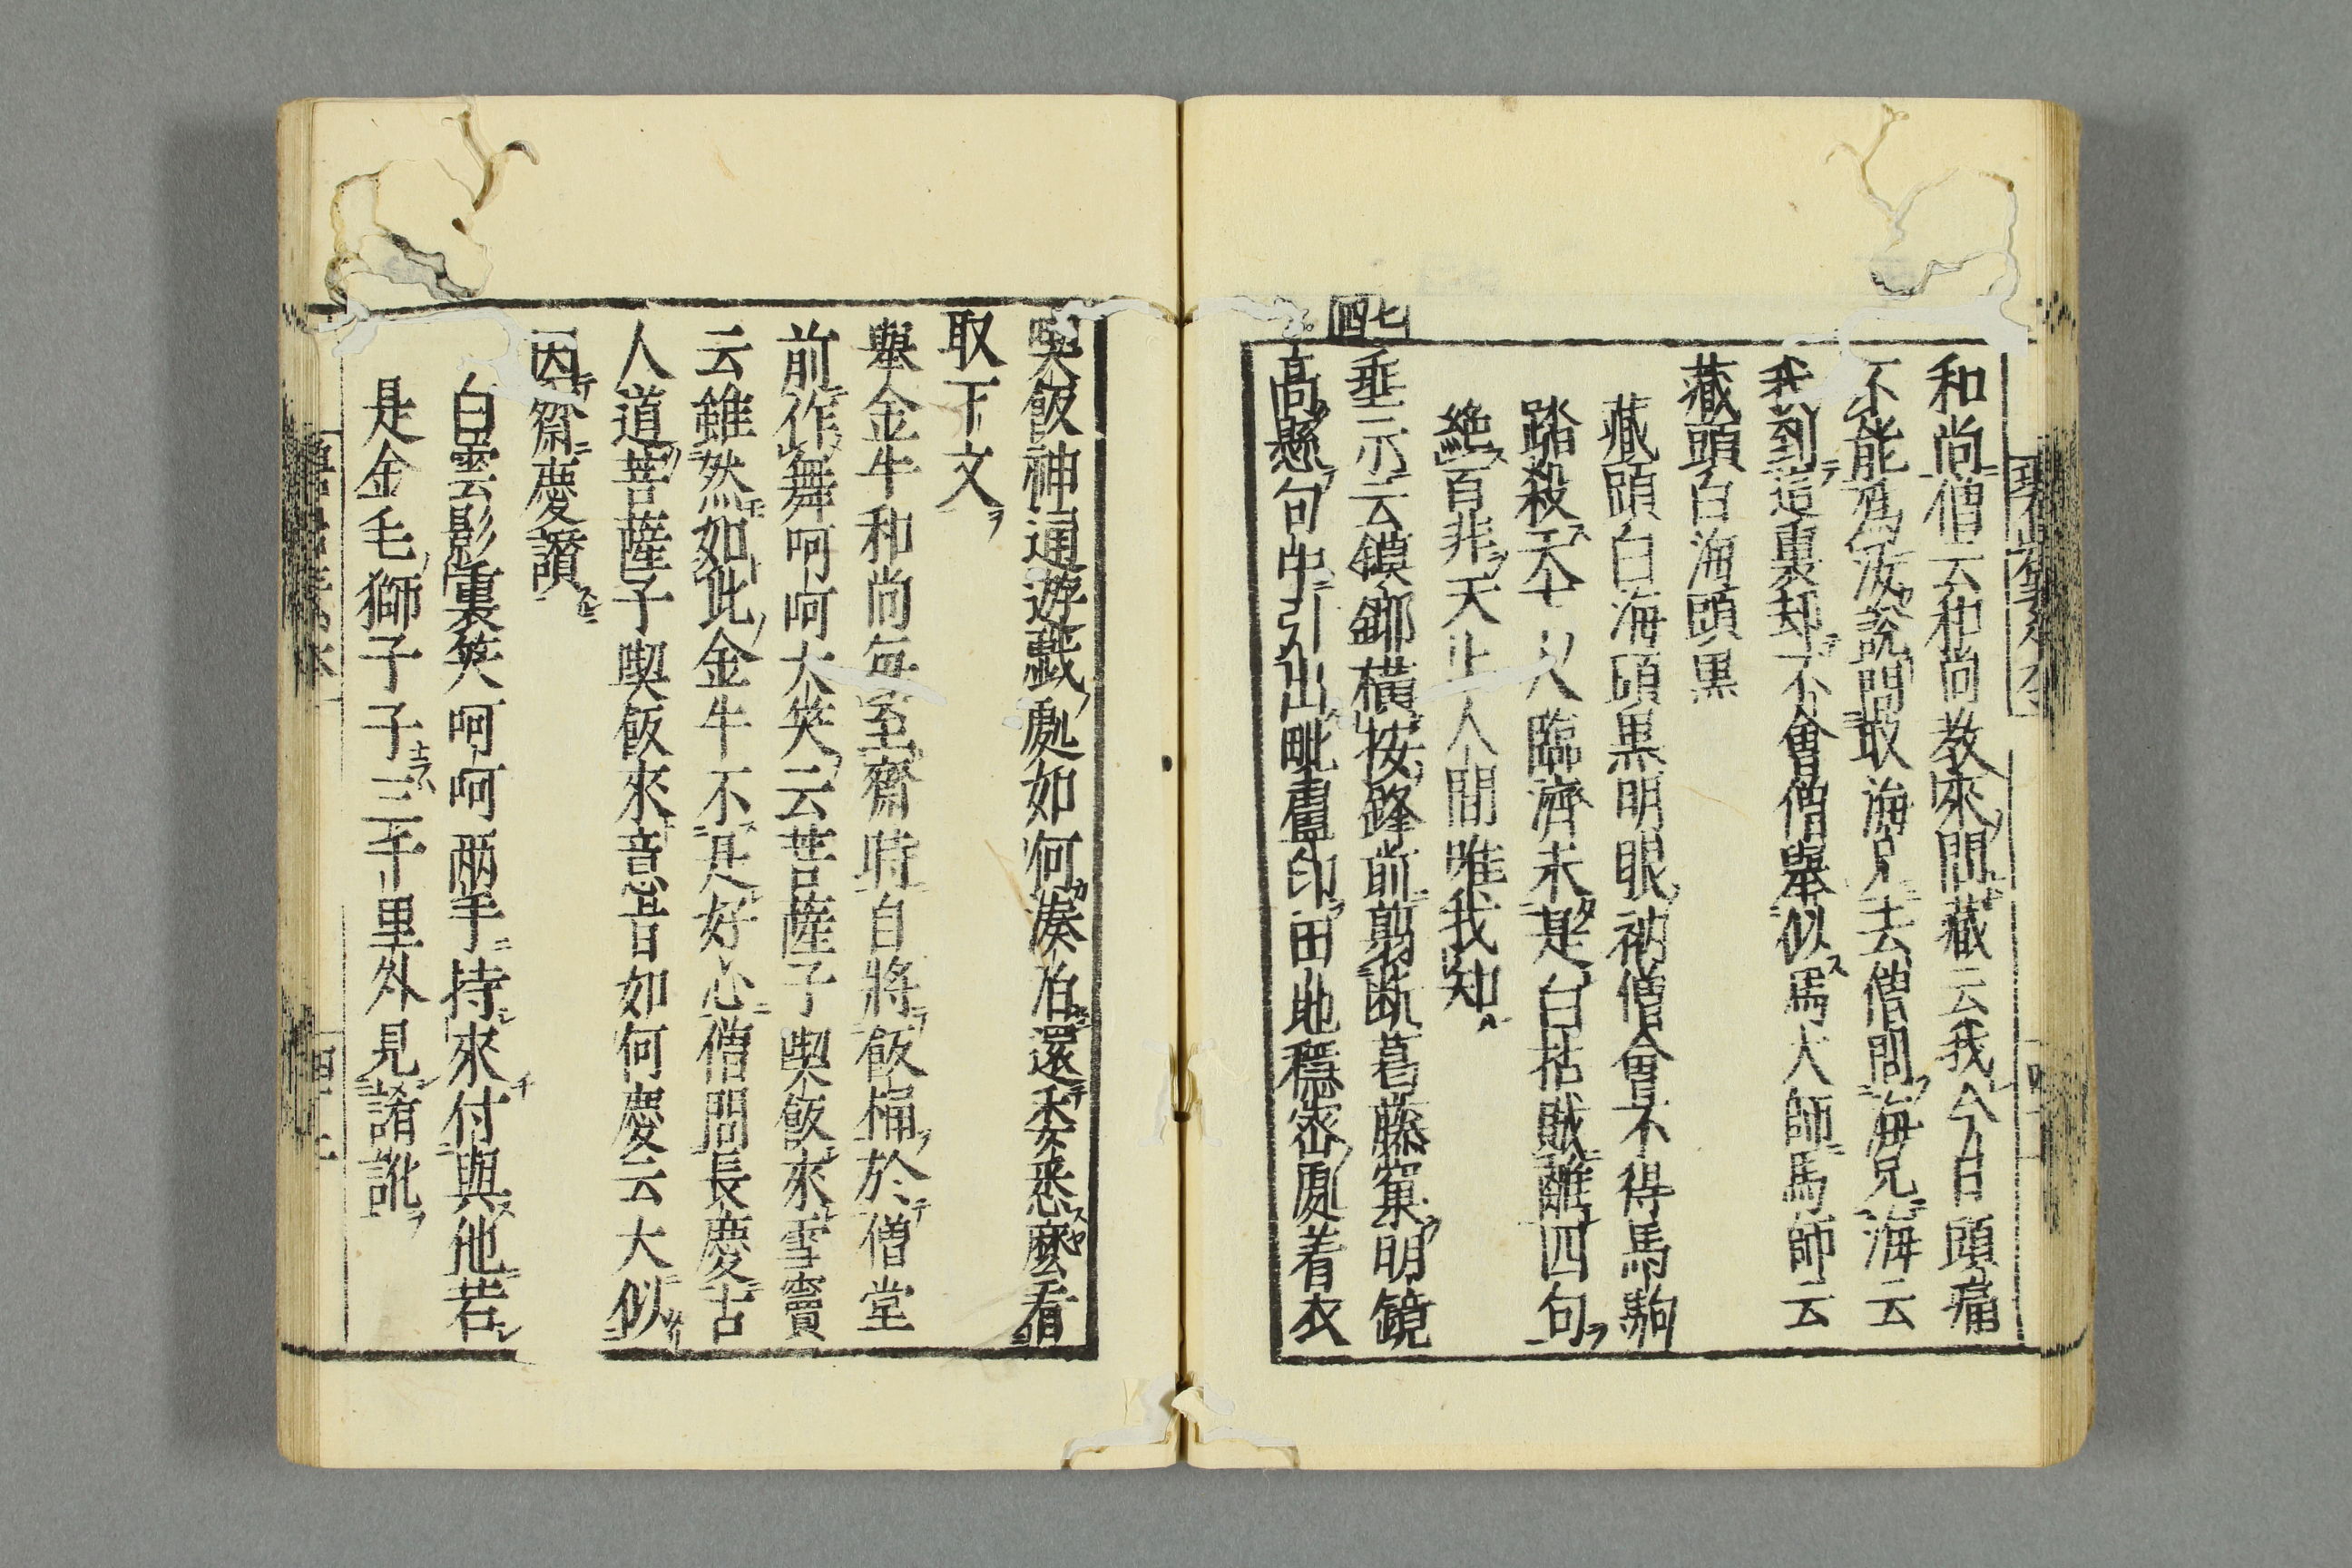 和尚僧云和尚教來問藏云我今日頭痛
不能爲汝說問取海兄去僧問海兄海云
我到這裏却不會僧舉似馬大師馬師云
藏頭白海頭黑
藏頭白海頭黒明眼衲僧會不得馬駒
踏殺天下人臨濟未是白拈賊離四句
絶百非天上人間唯我知
七四
垂示云鏌鎁橫按鋒前剪断葛藤窠明鏡
高懸句中引出毗盧印田地穩密處着衣
喫飯神通遊戲處如何湊泊還委悉麼看
取下文
舉金牛和尚每至齋時自將飯桶於僧堂
前作舞呵呵大笑云菩薩子喫飯來雪竇
云雖然如此金牛不是好心僧問長慶古
人道菩薩子喫飯來意旨如何慶云大似
因齋慶讃
白雲影裏笑呵呵両手持來付與他若
是金毛獅子子三千里外見誵訛